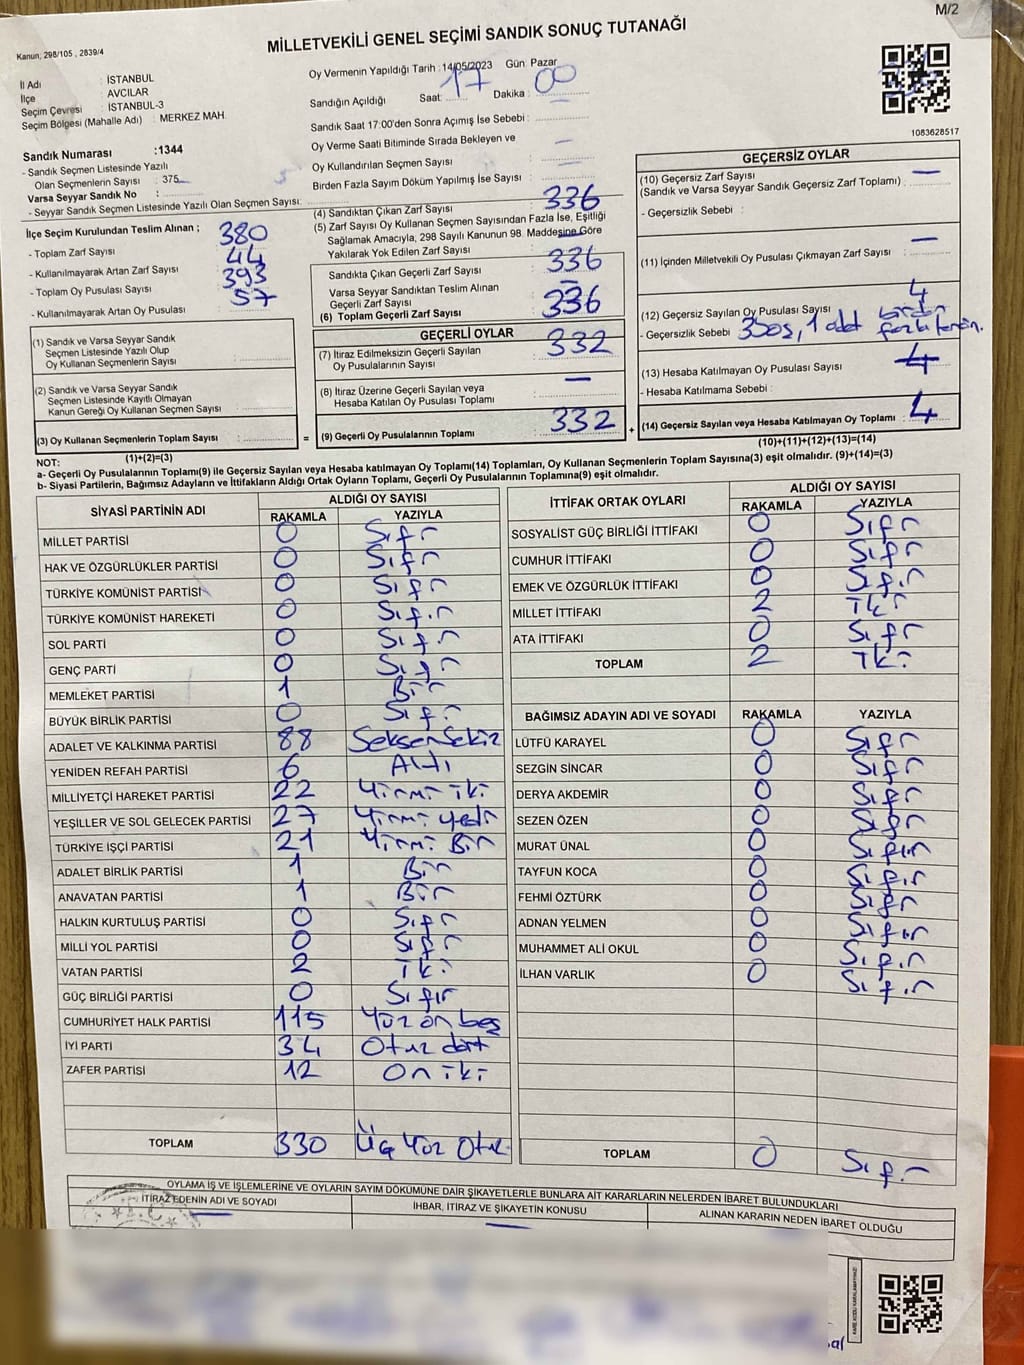 M/2
Kanun, 298/105 , 2839/4
MİLLETVEKİLİ GENEL SEÇİMİ SANDIK SONUÇ TUTANAĞI
İl Adı : İSTANBUL
İlçe : AVCILAR
Seçim Çevresi : İSTANBUL-3
Seçim Bölgesi (Mahalle Adı) : MERKEZ MAH.
Sandık Numarası :1344
- Sandık Seçmen Listesinde Yazılı
Olan Seçmenlerin Sayısı : 375
Varsa Seyyar Sandık No :
- Seyyar Sandık Seçmen Listesinde Yazılı Olan Seçmen Sayısı:
Oy Vermenin Yapıldığı Tarih :14/05/2023 Gün: Pazar
Sandığın Açıldığı Saat: 17 Dakika : 00
Sandık Saat 17:00'den Sonra Açımış İse Sebebi : –
Oy Verme Saati Bitiminde Sırada Bekleyen ve
Oy Kullandırılan Seçmen Sayısı : –
Birden Fazla Sayım Döküm Yapılmış İse Sayısı : –
1083628517
İlçe Seçim Kurulundan Teslim Alınan ;
- Toplam Zarf Sayısı : 380
- Kullanılmayarak Artan Zarf Sayısı : 44
- Toplam Oy Pusulası Sayısı : 393
- Kullanılmayarak Artan Oy Pusulası : 57
(1) Sandık ve Varsa Seyyar Sandık
Seçmen Listesinde Yazılı Olup
Oy Kullanan Seçmenlerin Sayısı :
(2) Sandık ve Varsa Seyyar Sandık
Seçmen Listesinde Kayıtlı Olmayan
Kanun Gereği Oy Kullanan Seçmen Sayısı :
(3) Oy Kullanan Seçmenlerin Toplam Sayısı :
(1)+(2)=(3)
(4) Sandıktan Çıkan Zarf Sayısı : 336
(5) Zarf Sayısı Oy Kullanan Seçmen Sayısından Fazla İse, Eşitliği
Sağlamak Amacıyla, 298 Sayılı Kanunun 98. Maddesine Göre
Yakılarak Yok Edilen Zarf Sayısı : –
Sandıkta Çıkan Geçerli Zarf Sayısı : 336
Varsa Seyyar Sandıktan Teslim Alınan
Geçerli Zarf Sayısı : –
(6) Toplam Geçerli Zarf Sayısı : 336
GEÇERLİ OYLAR
(7) İtiraz Edilmeksizin Geçerli Sayılan
Oy Pusulalarının Sayısı : 332
(8) İtiraz Üzerine Geçerli Sayılan veya
Hesaba Katılan Oy Pusulası Toplamı : –
= (9) Geçerli Oy Pusulalarının Toplamı : 332 +
GEÇERSİZ OYLAR
(10) Geçersiz Zarf Sayısı : –
(Sandık ve Varsa Seyyar Sandık Geçersiz Zarf Toplamı)
- Geçersizlik Sebebi :
(11) İçinden Milletvekili Oy Pusulası Çıkmayan Zarf Sayısı : –
(12) Geçersiz Sayılan Oy Pusulası Sayısı : 4
- Geçersizlik Sebebi : 3 boş, 1 adet birden fazla tercih.
(13) Hesaba Katılmayan Oy Pusulası Sayısı : 4
- Hesaba Katılmama Sebebi :
(14) Geçersiz Sayılan veya Hesaba Katılmayan Oy Toplamı : 4
(10)+(11)+(12)+(13)=(14)
NOT:
a- Geçerli Oy Pusulalarının Toplamı(9) ile Geçersiz Sayılan veya Hesaba katılmayan Oy Toplamı(14) Toplamları, Oy Kullanan Seçmenlerin Toplam Sayısına(3) eşit olmalıdır. (9)+(14)=(3)
b- Siyasi Partilerin, Bağımsız Adayların ve İttifakların Aldığı Ortak Oyların Toplamı, Geçerli Oy Pusulalarının Toplamına(9) eşit olmalıdır.
SİYASİ PARTİNİN ADI ALDIĞI OY SAYISI
RAKAMLA YAZIYLA
MİLLET PARTİSİ 0 Sıfır
HAK VE ÖZGÜRLÜKLER PARTİSİ 0 Sıfır
TÜRKİYE KOMÜNİST PARTİSİ 0 Sıfır
TÜRKİYE KOMÜNİST HAREKETİ 0 Sıfır
SOL PARTİ 0 Sıfır
GENÇ PARTİ 0 Sıfır
MEMLEKET PARTİSİ 1 Bir
BÜYÜK BİRLİK PARTİSİ 0 Sıfır
ADALET VE KALKINMA PARTİSİ 88 Seksen Sekiz
YENİDEN REFAH PARTİSİ 6 Altı
MİLLİYETÇİ HAREKET PARTİSİ 22 Yirmi iki
YEŞİLLER VE SOL GELECEK PARTİSİ 27 Yirmi yedi
TÜRKİYE İŞÇİ PARTİSİ 21 Yirmi Bir
ADALET BİRLİK PARTİSİ 1 Bir
ANAVATAN PARTİSİ 1 Bir
HALKIN KURTULUŞ PARTİSİ 0 Sıfır
MİLLİ YOL PARTİSİ 0 Sıfır
VATAN PARTİSİ 2 İki
GÜÇ BİRLİĞİ PARTİSİ 0 Sıfır
CUMHURİYET HALK PARTİSİ 115 Yüz on beş
İYİ PARTİ 34 Otuz dört
ZAFER PARTİSİ 12 On iki
TOPLAM 330 Üç Yüz Otuz
İTTİFAK ORTAK OYLARI ALDIĞI OY SAYISI
RAKAMLA YAZIYLA
SOSYALİST GÜÇ BİRLİĞİ İTTİFAKI 0 Sıfır
CUMHUR İTTİFAKI 0 Sıfır
EMEK VE ÖZGÜRLÜK İTTİFAKI 0 Sıfır
MİLLET İTTİFAKI 2 İki
ATA İTTİFAKI 0 Sıfır
TOPLAM 2 İki
BAĞIMSIZ ADAYIN ADI VE SOYADI RAKAMLA YAZIYLA
LÜTFÜ KARAYEL 0 Sıfır
SEZGİN SİNCAR 0 Sıfır
DERYA AKDEMİR 0 Sıfır
SEZEN ÖZEN 0 Sıfır
MURAT ÜNAL 0 Sıfır
TAYFUN KOCA 0 Sıfır
FEHMİ ÖZTÜRK 0 Sıfır
ADNAN YELMEN 0 Sıfır
MUHAMMET ALİ OKUL 0 Sıfır
İLHAN VARLIK 0 Sıfır
TOPLAM 0 Sıfır
OYLAMA İŞ VE İŞLEMLERİNE VE OYLARIN SAYIM DÖKÜMÜNE DAİR ŞİKAYETLERLE BUNLARA AİT KARARLARIN NELERDEN İBARET BULUNDUKLARI
İTİRAZ EDENİN ADI VE SOYADI İHBAR, İTİRAZ VE ŞİKAYETİN KONUSU ALINAN KARARIN NEDEN İBARET OLDUĞU
– –